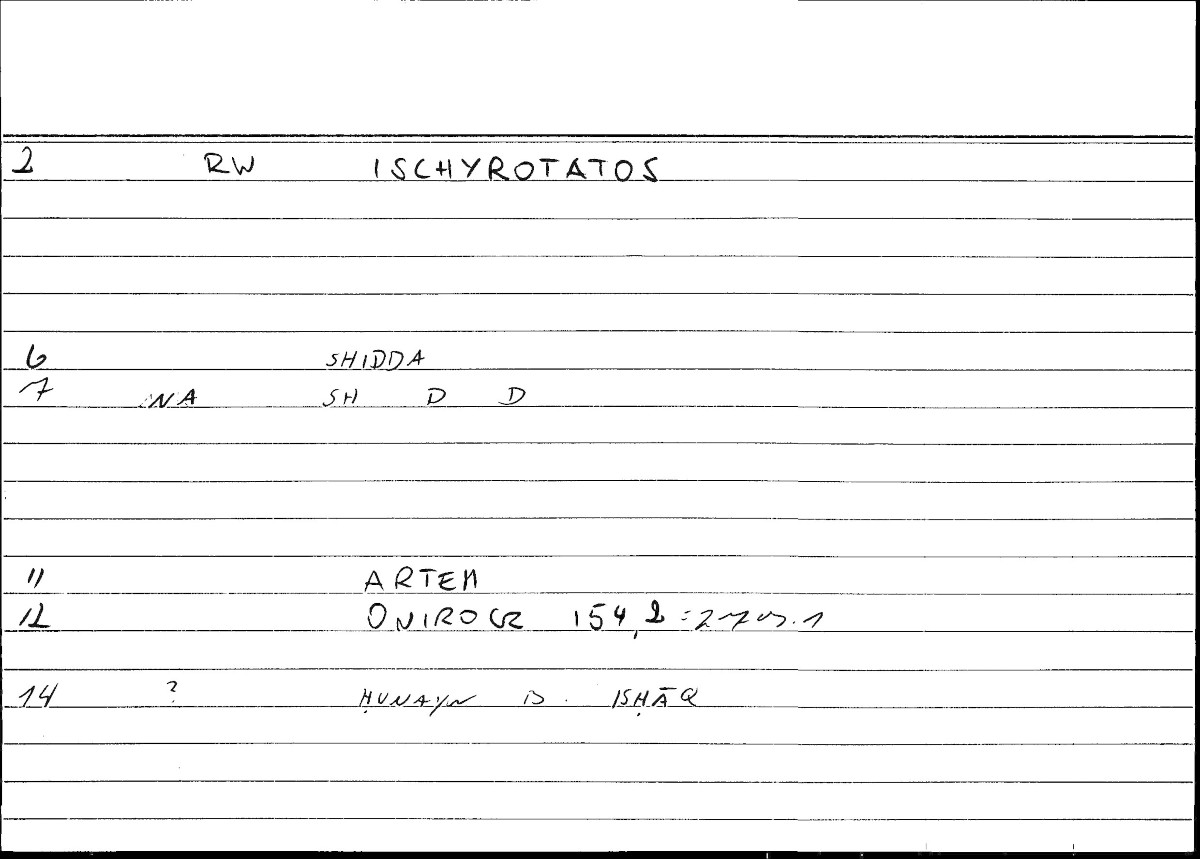 2 RW ISCHYROTATOS
6 SHIDDA
7 NA SH D D
11 ARTEM
12 ONIROCR 154,2 =
14 ? ḤUNAYN B. ISḤĀQ